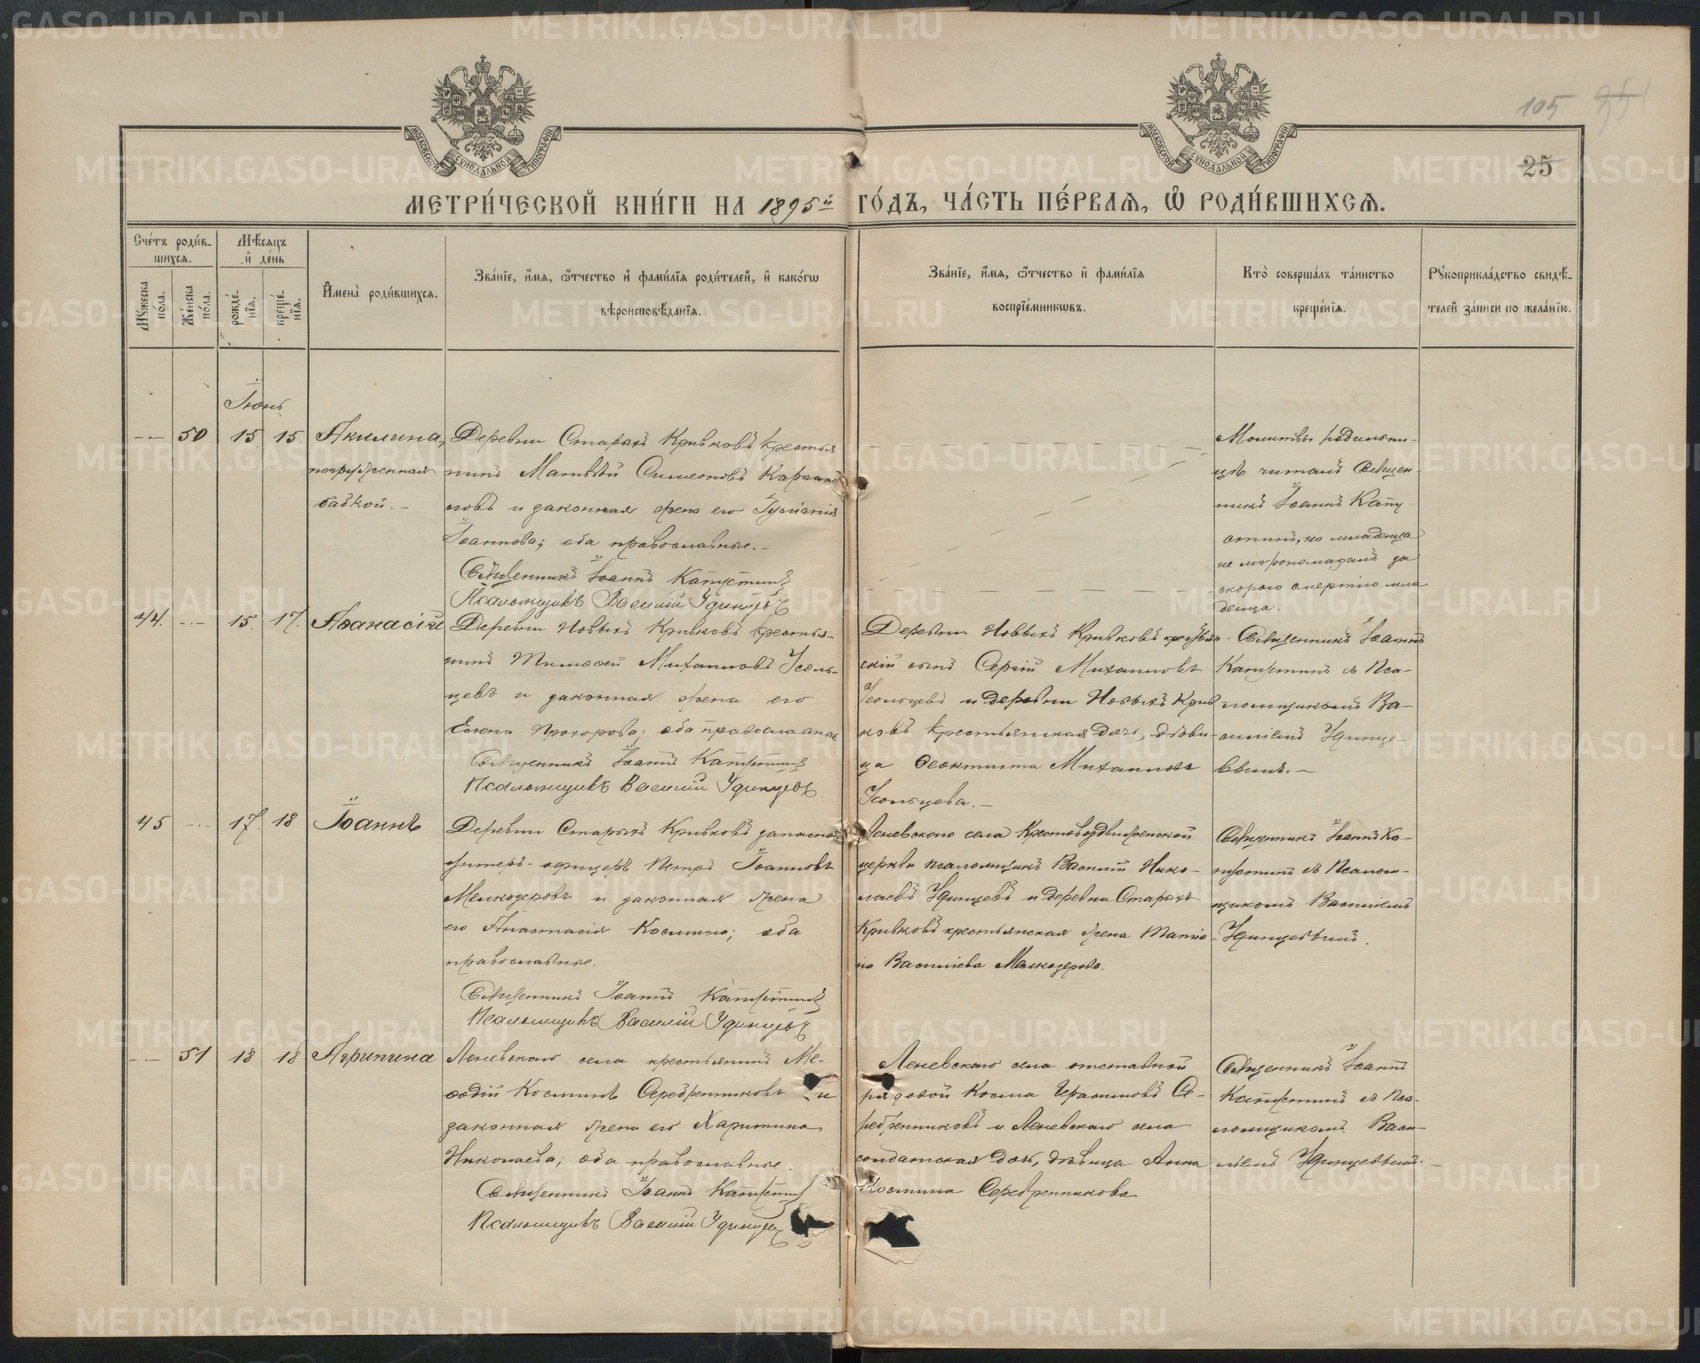 105
25
МЕТРИ́ЧЕСКОЙ КНИ́ГИ НА 1895й ГО́ДЪ, ЧА́СТЬ ПЕ́РВАЯ, Ѡ РОДИ́ВШИХСЯ.
Сче́тъ роди́в-
шихся.
Мѣ́сяцъ
и де́нь
Мꙋ́жеска по́ла.
Же́нска по́ла.
рожде́-нїя.
креще́-нїя.
И҆мена̀ роди́вшихся.
Зва́нїе, и҆́мя, ѻ҆́тчество и҆ фами́лїя роди́телей, и҆ како́гѡ
вѣроисповѣ́данїя.
Зва́нїе, и҆́мя, ѻ҆́тчество и҆ фами́лїя
воспрїе́мникѡвъ.
Кто̀ соверша́лъ та́инство
креще́нїя.
Рꙋкоприкла́дство свидѣ́-
телей за́писи по жела́нїю.
Іюнь
50 15. 15.
Акилина,
погруженная
бабкой. -
Деревни Старыхъ Кривковъ крестья
нинъ Матвѣй Симеоновъ
и законная жена его
Іоаннова; оба православные. -
Священникъ Іоаннъ Капустинъ
Псаломщикъ Василій Удинцевъ
Молитвы родильни-
цѣ читалъ Священ
никъ Іоаннъ Капу
стинъ, но младенца
не мѵропомазалъ за
скорою смертію мла
денца.
44. 15. 17.
Аѳанасій
Деревни Новыхъ Кривковъ крестья-
нинъ Тимоѳей Михаиловъ Усоль-
цевъ и законная жена его
Елена Прохорова; оба православные
Священникъ Іоаннъ Капустинъ
Псаломщикъ Василій Удинцевъ
Деревни Новыхъ Кривковъ крестьян-
скій сынъ Сергій Михаиловъ
Усольцевъ и деревни Новыхъ Крив
ковъ крестьянская дочь, дѣви-
ца Ѳеоктиста Михаилова
Усольцева. -
Священникъ Іоаннъ
Капустинъ съ Пса-
ломщикомъ Ва-
силіемъ Удинце-
вымъ. -
45 17. 18
Іоаннъ
Деревни Старыхъ Кривковъ запасной
унтеръ-офицеръ Петръ Іоанновъ
Мелкозеровъ и законная жена
его Анастасія Космина; оба
православные.
Священникъ Іоаннъ Капустинъ
Псаломщикъ Василій Удинцевъ
Леневскаго села Крестовоздвиженской
церкви псаломщикъ Василій Нико-
лаевъ Удинцевъ и деревни Старыхъ
Кривковъ крестьянская жена
Василіева Мелкозерова.
Священникъ Іоаннъ Ка-
пустинъ съ Псалом-
щикомъ Василіемъ
Удинцевымъ.
51 18 18
Агрипина
Леневскаго села крестьянинъ Ме-
ѳодій Косминъ Серебренниковъ и
законная жена его Харитина
Николаева; оба православные.
Священникъ Іоаннъ Капустинъ
Псаломщикъ Василій Удинцевъ
Леневскаго села отставной
рядовой Косма Герасимовъ Се-
ребренниковъ и Леневскаго села
солдатская дочь, дѣвица Анна
Космина Серебренникова
Священникъ Іоаннъ
Капустинъ съ Пса-
ломщикомъ Васи-
ліемъ Удинцевымъ. -